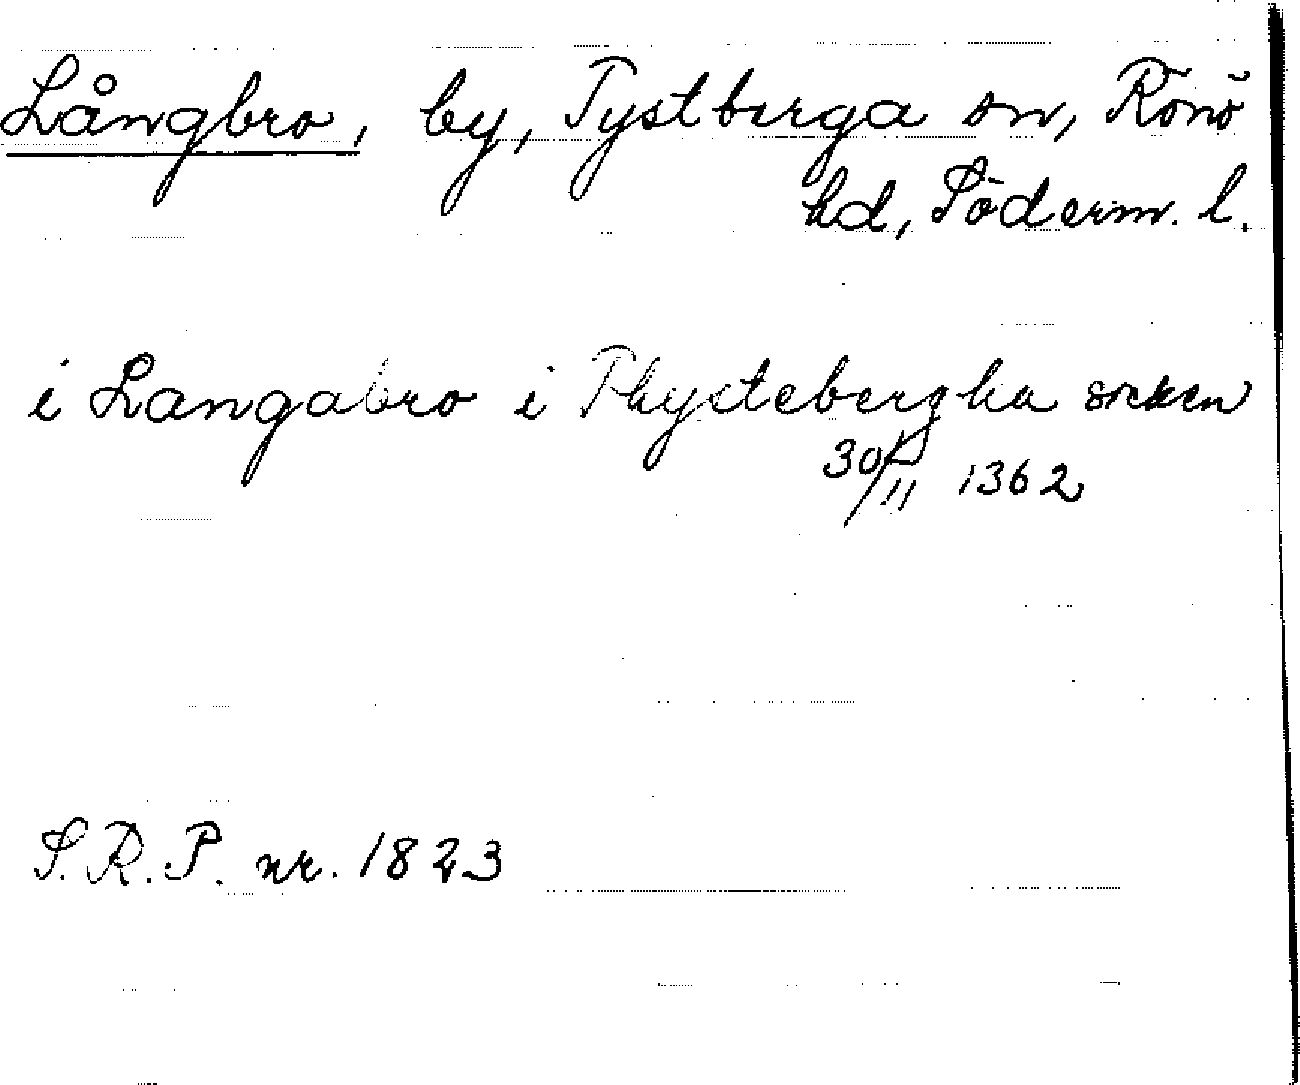 Långbro, by, Tystberga sn, Rönö
hd, Söderm. l.
i Langabro i Thystebergha socken
30/11 1362
S.R.P. nr. 1823